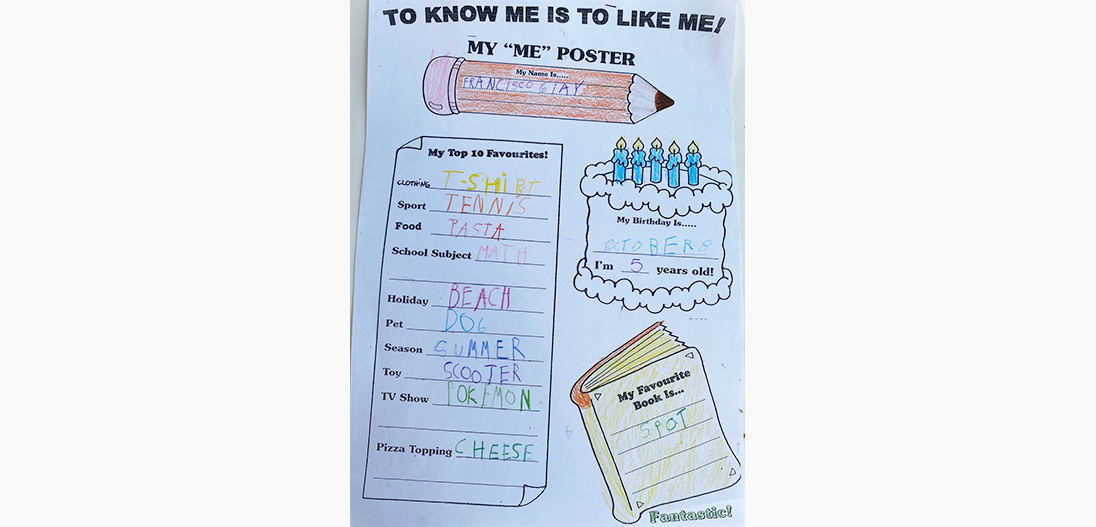 TO KNOW ME IS TO LIKE ME!
MY “ME” POSTER
My Name Is.....
FRANCISCO GIAY
My Top 10 Favourites!
CLOTHING T-SHIRT
Sport TENNIS
Food PASTA
School Subject MATH
Holiday BEACH
Pet DOG
Season SUMMER
Toy SCOOTER
TV Show POKEMON
Pizza Topping CHEESE
My Birthday Is.....
OCTOBER 8
I'm 5 years old!
My Favourite
Book Is...
SPOT
Fantastic!